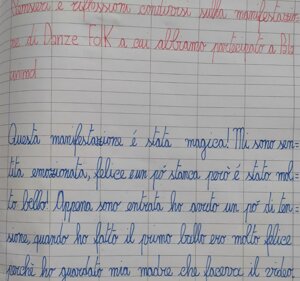 e riflessioni condivise sulla manifestazio
ne di Danze Folk a cui abbiamo partecipato a Pala
Questa manifestazione è stata magica! Mi sono sen-
tita emozionata, felice e un pó stanca però è stato mol-
to bello! Appena sono entrata ho avuto un pó di ten-
sione, quando ho fatto il primo ballo ero molto felice
perchè ho guardato mia madre che faceva il video.